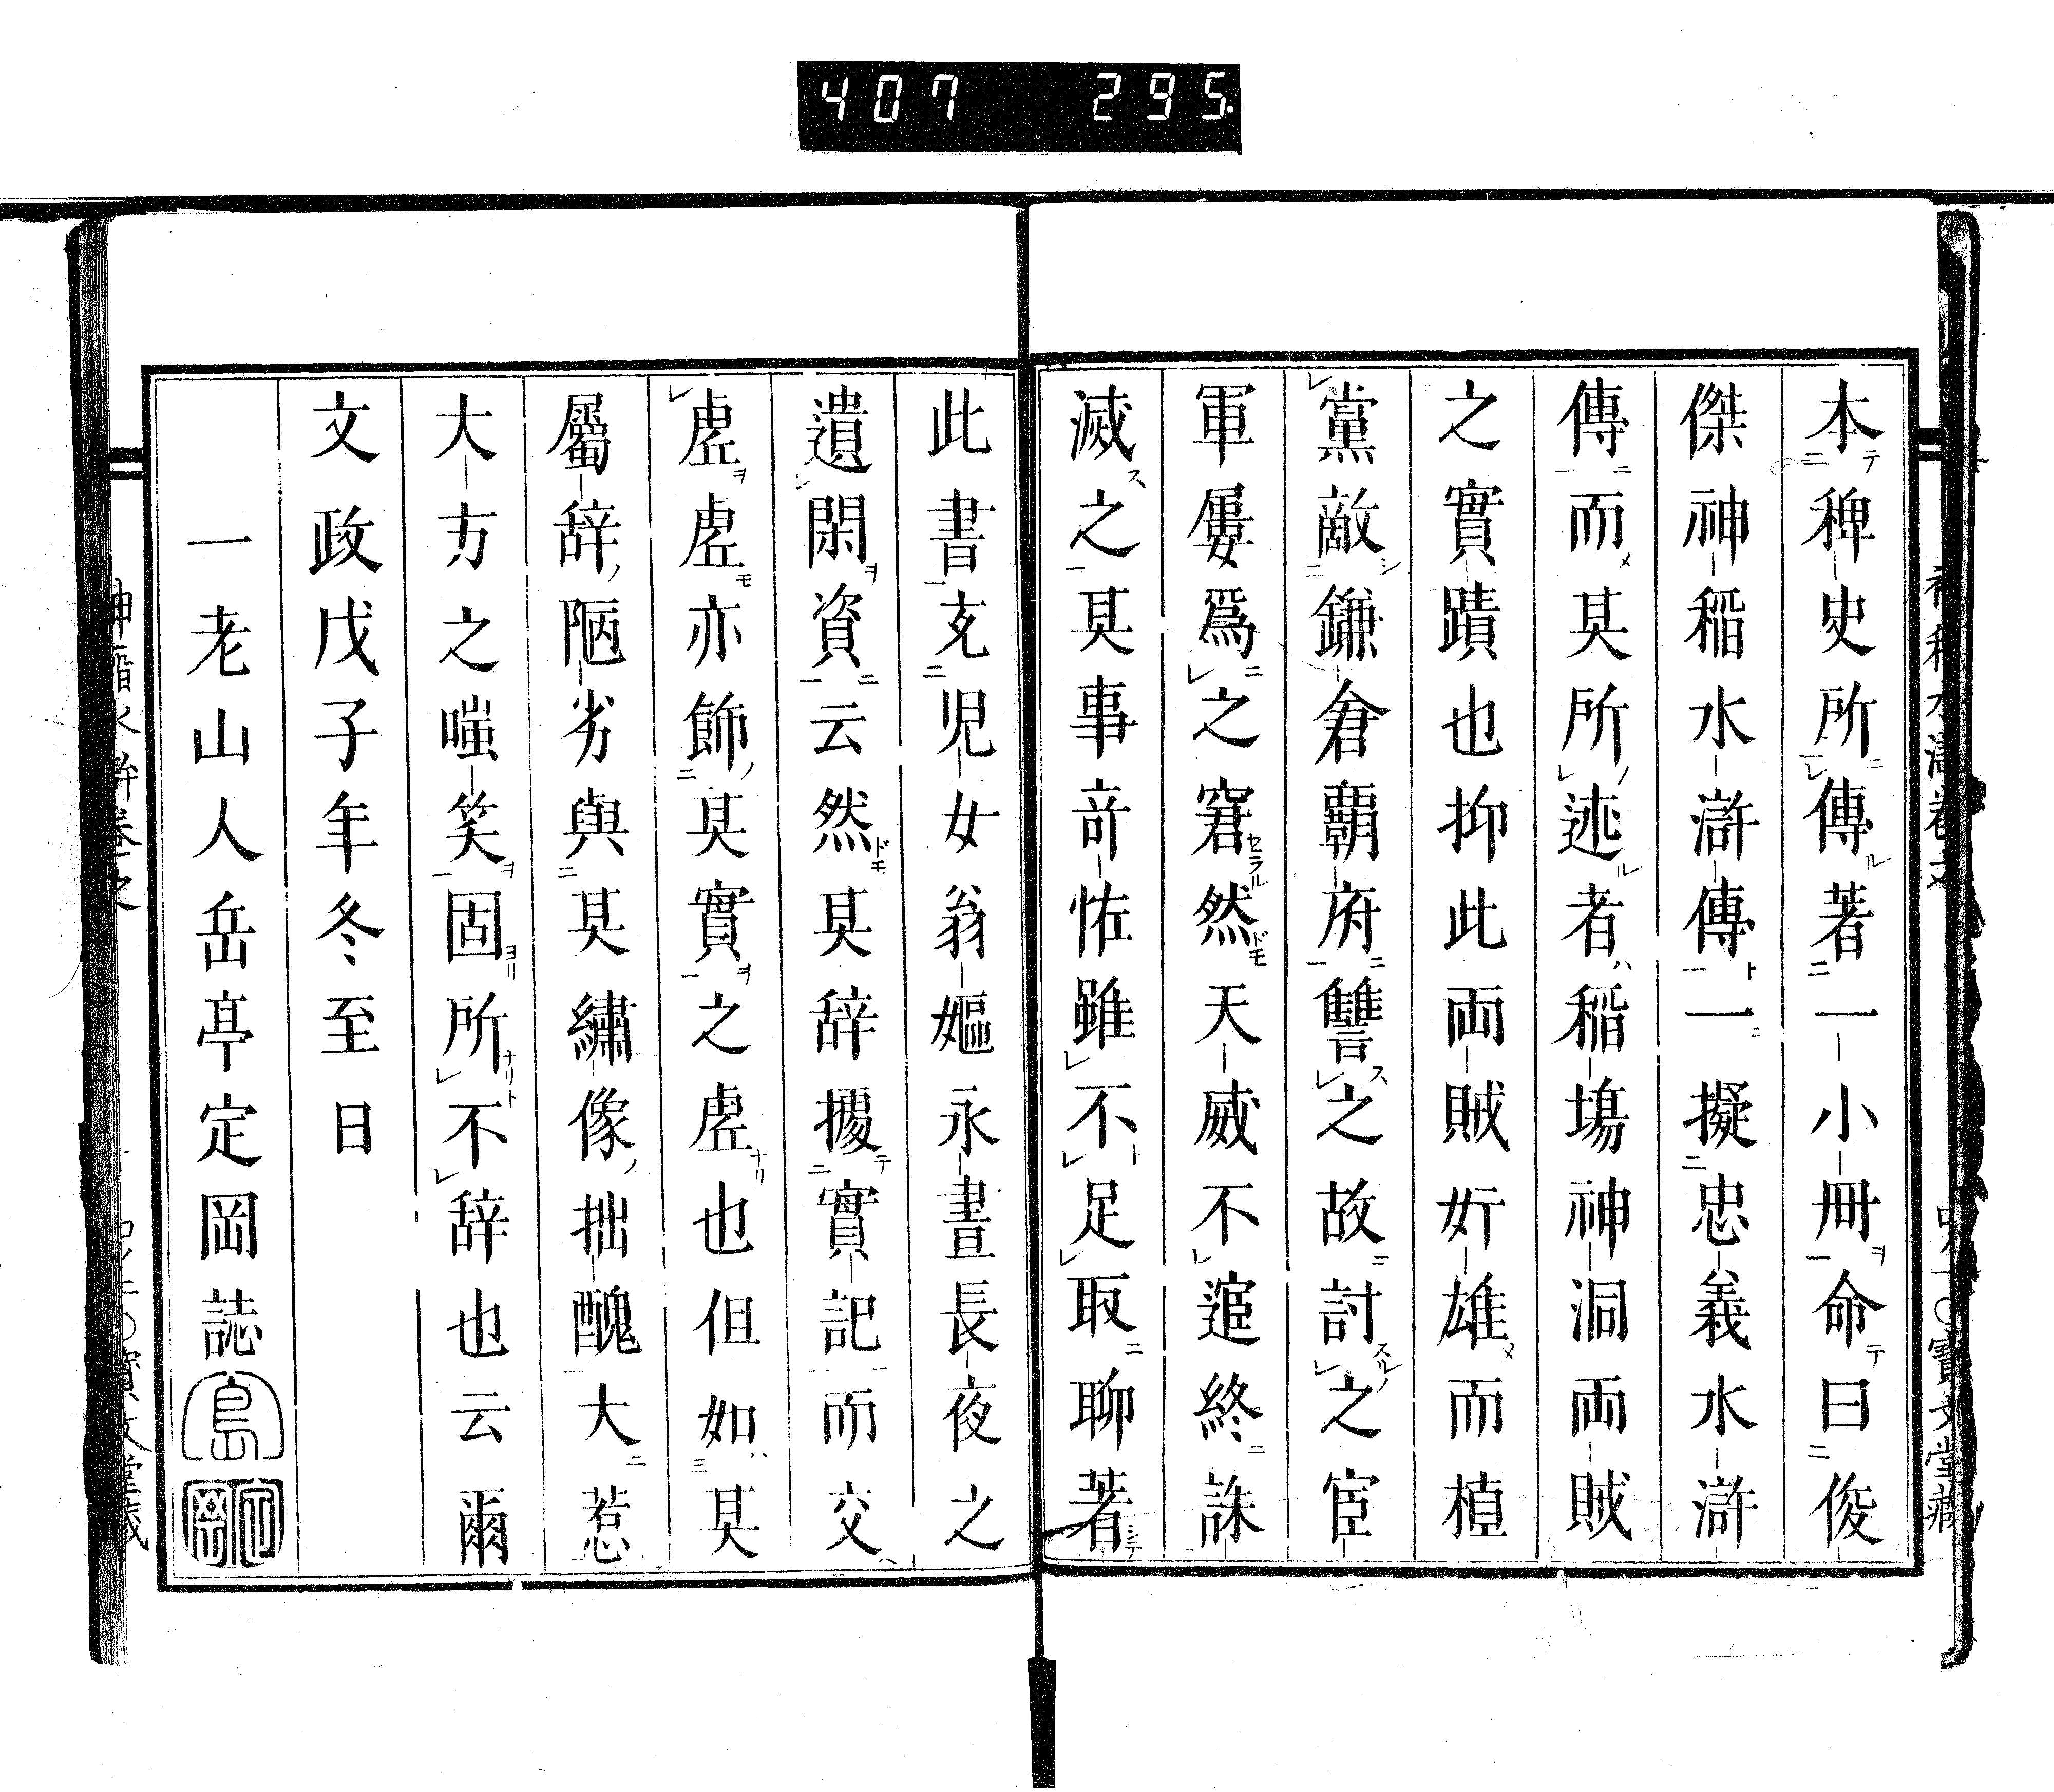 407 295
本稗史所傳著一小冊命曰俊
傑神稲水滸傳一擬忠義水滸
傳而其所述者稲塲神洞両賊
之實蹟也抑此両賊奸雄而植
黨敵鎌倉覇府讐之故討之宦
軍屢爲之窘然天威不逭終誅
滅之其事竒怪雖不足取聊著
此書充児女翁嫗永晝長夜之
遺閑資云然其辞擾實記而交
虚虚亦飾其實之虚也但如其
屬辞陋劣與其繍像拙醜大惹
大方之嗤笑固所不辞也云爾
文政戊子年冬至日
一老山人岳亭定岡誌